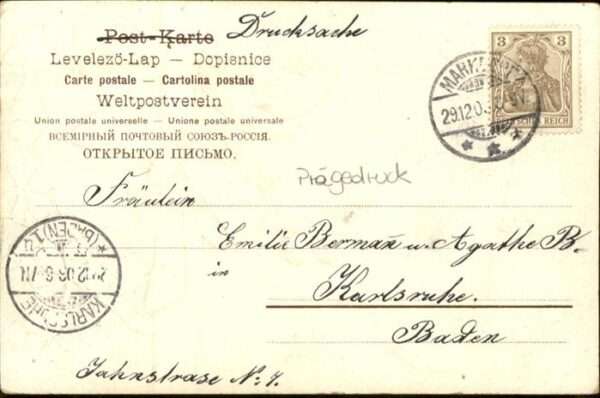 Post-Karte Drucksache
Levelező-Lap — Dopisnice
Carte postale — Cartolina postale
Weltpostverein
Union postale universelle — Unione postale universale
ВСЕМІРНЫЙ ПОЧТОВЫЙ СОЮЗЪ-РОССІЯ.
ОТКРЫТОЕ ПИСЬМО.
3 3
29.12.03
REICH
Prägedruck
Fräulein
Emilie Bermañ u. Agathe B.
in
Karlsruhe.
Baden
Jahnstrase No. 7.
KARLSRUHE
(BADEN)